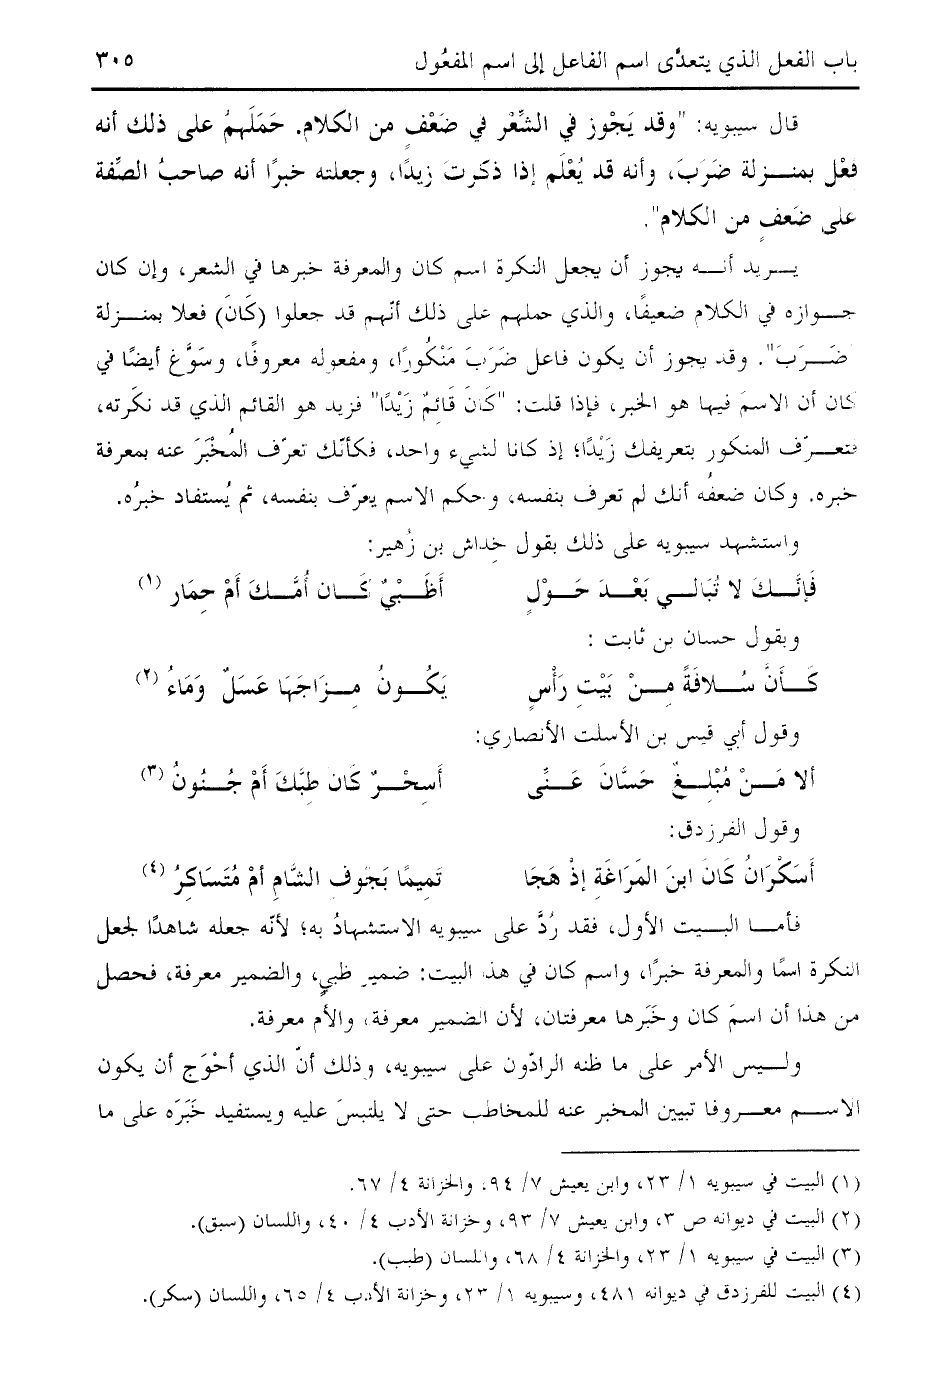 باب الفعل الذي يتعدَّى اسم الفاعل إلى اسم المفعُول ٣٠٥
قال سيبويه: "وقد يَجُوز في الشِّعْر في ضَعْفٍ من الكلام. حَمَلَهمُ على ذلك أنه
فِعْل بمنـزلة ضَرَبَ، وأنه قد يُعْلَم إذا ذكرتَ زيدًا، وجعلته خبرًا أنه صاحبُ الصِّفة
على ضَعفٍ من الكلام".
يـريد أنـه يجوز أن يجعل النكرة اسم كان والمعرفة خبرها في الشعر، وإن كان
جـوازه في الكلام ضعيفًا، والذي حملهم على ذلك أنّهم قد جعلوا (كَانَ) فعلا بمنـزلة
ضَـرَبَ". وقد يجوز أن يكون فاعل ضَرَبَ مَنْكُورًا، ومفعوله معروفًا، وسَوَّغ أيضًا في
كان أن الاسمَ فيها هو الخبر، فإذا قلت: "كَانَ قَائِمٌ زَيْدًا" فزيد هو القائم الذي قد نكَرته،
فتعـرّف المنكور بتعريفك زَيْدًا؛ إذ كانا لشيء واحد، فكأنّك تعرّف المُخْبَرَ عنه بمعرفة
خبره. وكان ضعفُه أنك لم تعرف بنفسه، وحكم الاسم يعرّف بنفسه، ثم يُستفاد خبرُه.
واستشهد سيبويه على ذلك بقول خِداش بن زُهير:
فَإنَّـكَ لا تُبَالـي بَعْـدَ حَـوْلٍ أَظَـبْيٌ كَـان أُمَّـكَ أَمْ حِمَار (١)
وبقول حسان بن ثابت :
كَـأَنَّ سُـلافَةً مِـنْ بَيْتِ رَأْسٍ يَكُـونُ مِـزَاجَهَا عَسَلٌ وَمَاءُ (٢)
وقول أبي قيس بن الأسلت الأنصاري:
ألا مَـنْ مُبْلِـغٌ حَسَّانَ عَـنَّى أَسِحْـرٌ كَان طِبَّكَ أَمْ جُـنُونُ (٣)
وقول الفرزدق:
أَسَكْرَانُ كَانَ ابنَ المَرَاغَةِ إذْ هَجَا تَمِيمًا بَجَوفِ الشَّامِ أمْ مُتَسَاكِرُ (٤)
فأمـا البـيت الأول، فقد رُدَّ على سيبويه الاستشهادُ به؛ لأنّه جعله شاهدًا لجعل
النكرة اسمًا والمعرفة خبرًا، واسم كان في هذا البيت: ضمير ظبيٍ، والضمير معرفة، فحصل
من هذا أن اسمَ كان وخَبَرها معرفتان، لأن الضمير معرفة، والأم معرفة.
ولـيس الأمر على ما ظنه الرادّون على سيبويه، وذلك أنّ الذي أحْوَج أن يكون
الاسـم معـروفا تبيين المخبر عنه للمخاطب حتى لا يلتبسَ عليه ويستفيد خَبَرَه على ما
(١) البيت في سيبويه ١/ ٢٣، وابن يعيش ٧/ ٩٤، والخزانة ٤/ ٦٧.
(٢) البيت في ديوانه ص ٣، وابن يعيش ٧/ ٩٣، وخزانة الأدب ٤/ ٤٠، واللسان (سبق).
(٣) البيت في سيبويه ١/ ٢٣، والخزانة ٤/ ٦٨، واللسان (طبب).
(٤) البيت للفرزدق في ديوانه ٤٨١، وسيبويه ١/ ٢٣، وخزانة الأدب ٤/ ٦٥، واللسان (سكر).